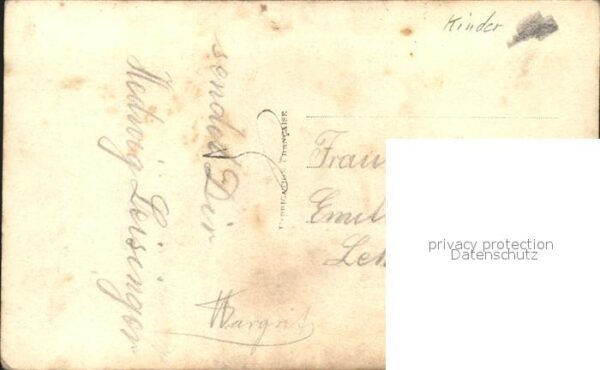 Kinder
sendet Dir
Hedwig Leisinger
FABRICATION FRANÇAISE
Frau
Emil
Margrit
privacy protection
Datenschutz